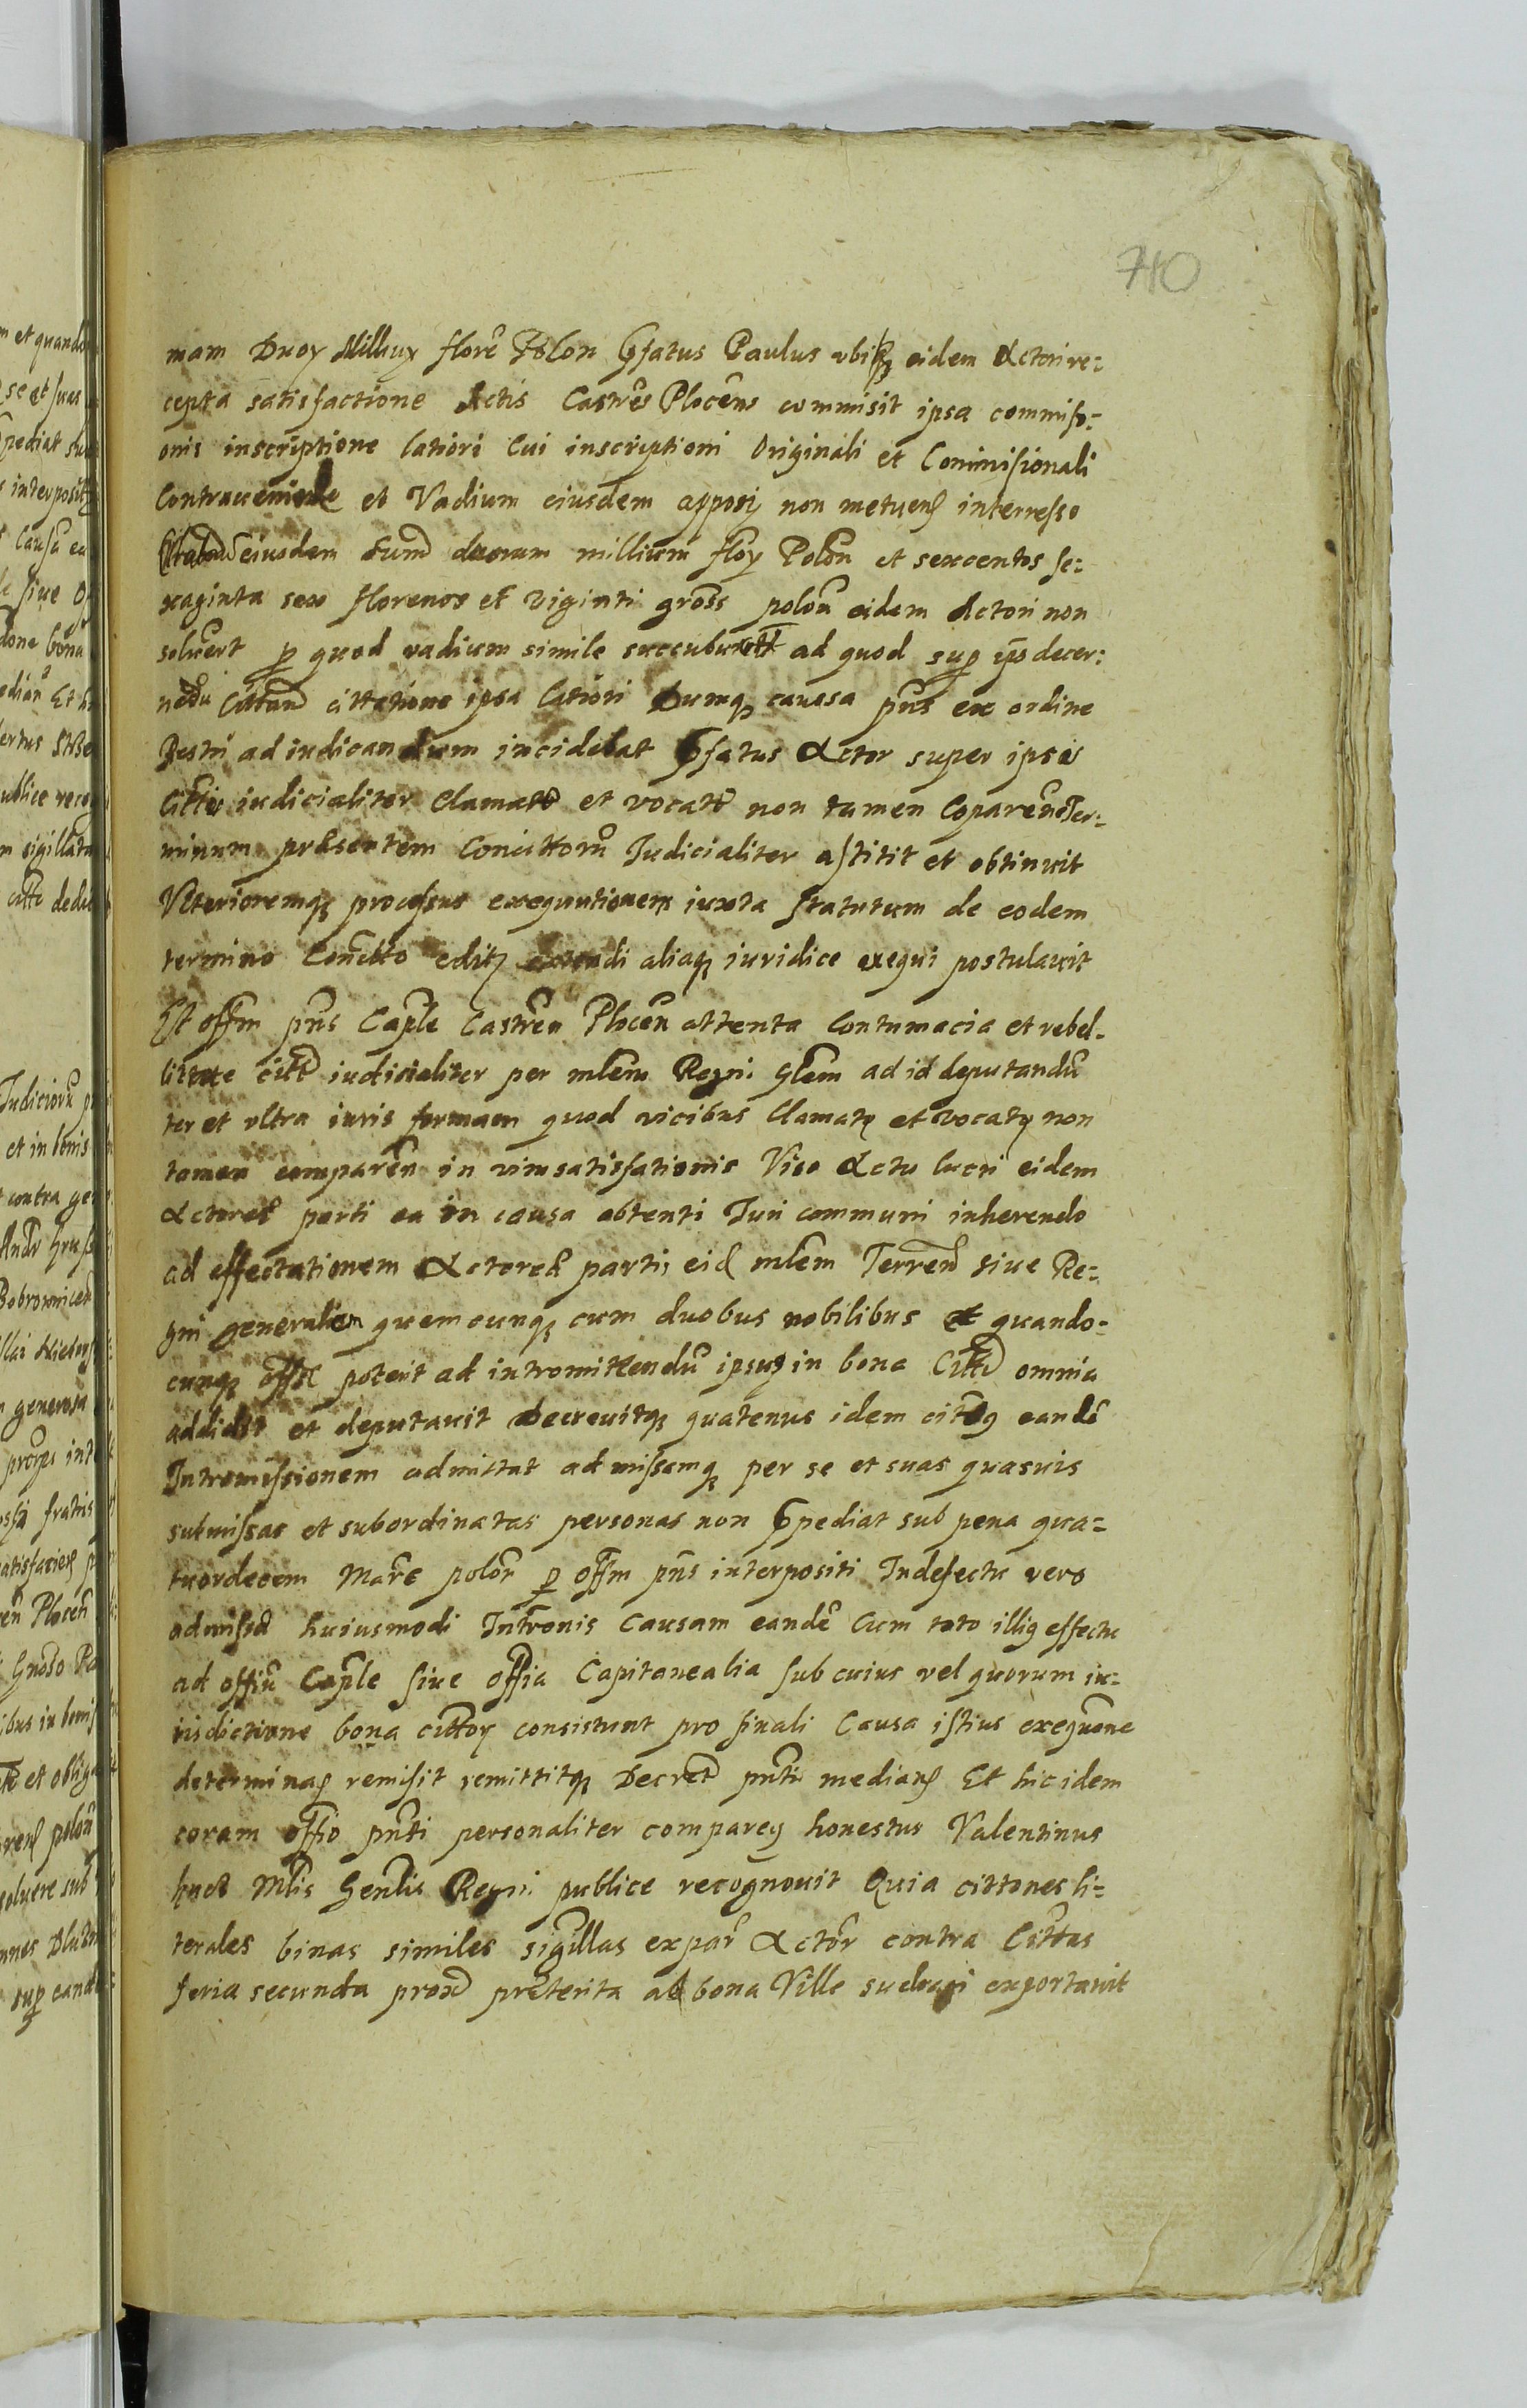 710
mam Duoꝝ Milliuꝝ florē Polon Pfatus Paulus ubiqꝫ eidem Actori re=
cepta satisfactione Actis Castrēs Plocēns commisit ipsa commissi=
onis inscriptione latiori Cui inscriptioni Originali et Commissionali
Contraueniendo et Vadium eiusdem apposi non metuens interresse
eiusdem Sum̃ duorum millium floꝝ Polon̄ et sexcentos se=
xaginta sex florenos et viginti gross polon̄ eidem Actori non
soluert ꝑ quod vadium simile succubuert ad quod suꝑ ip̄o decer:
nēdū Cittand̄ cittatione ipsa latiori Dumqꝫ caussa pn̄s ex ordine
Restri ad iudicandum incidebat Pfatus Actor super ipsis
Cittis iudicialiter Clamatis et vocatis non tamen Coparēn Ter:
minum præsentem Concittorū Iudicialiter astitit et obtinuit
Vlterioremqꝫ processus exequutionem iuxta statutum de eodem
termino Concitto edit extendi aliaqꝫ iuridice exequi postulauit
Et offm pn̄s Caple Castren Plocen attenta Contumacia et rebel=
litate citt iudicialiter per mlēm Regni Glēm ad id deputandū
ter et vltra iuris formam quod vicibus Clamatꝫ et vocatꝫ non
tamen comparēn in vim satisfationis Viso Actu lucri eidem
Actoreæ parti ea in causa obtenti Iuri communi inherendo
ad affectationem Actoreæ partis eid mlēm Terrēm siue Re=
gni generalem quemcunqꝫ cum duobus nobilibus et quando=
cunqꝫ potērit ad intromittendū ipsuꝫ in bona Citti omnia
addidit et deputauit Decreuitqꝫ quatenus idem citt9 eandē
Intromissionem admittat admissamqꝫ per se et suas quasuis
submissas et subordinatas personas non Ppediat sub pena qua=
tuordecem Marc̄ polon̄ ꝑ offm pn̄s interpositi In defectu vero
admissæ huiusmodi Intrōnis Causam eandē Cum toto illi9 effectu
ad offiū Caple siue offia Capitanealia sub cuius vel quorum iu=
risdictione bona cittoꝝ consistunt pro finali Causa istius exequōne
determinaꝫ remisit remittitqꝫ Decret pn̄ti medianꝫ Et hic idem
coram offio pn̄ti personaliter comparenꝫ honestus Valentinus
Mlis Gēnlis Regni publice recognouit Quia cittōnes li=
terales binas similes sigillas expar Actor contra Cittas
feria secunda prox præterita ad bona Ville exportauit